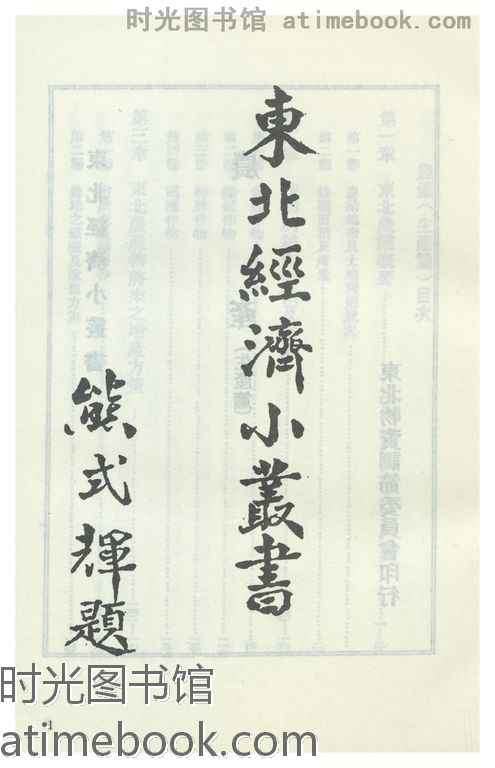 时光图书馆 atimebook.com
東北經濟小叢書
熊式輝題
时光图书馆
•1
atimebook.com